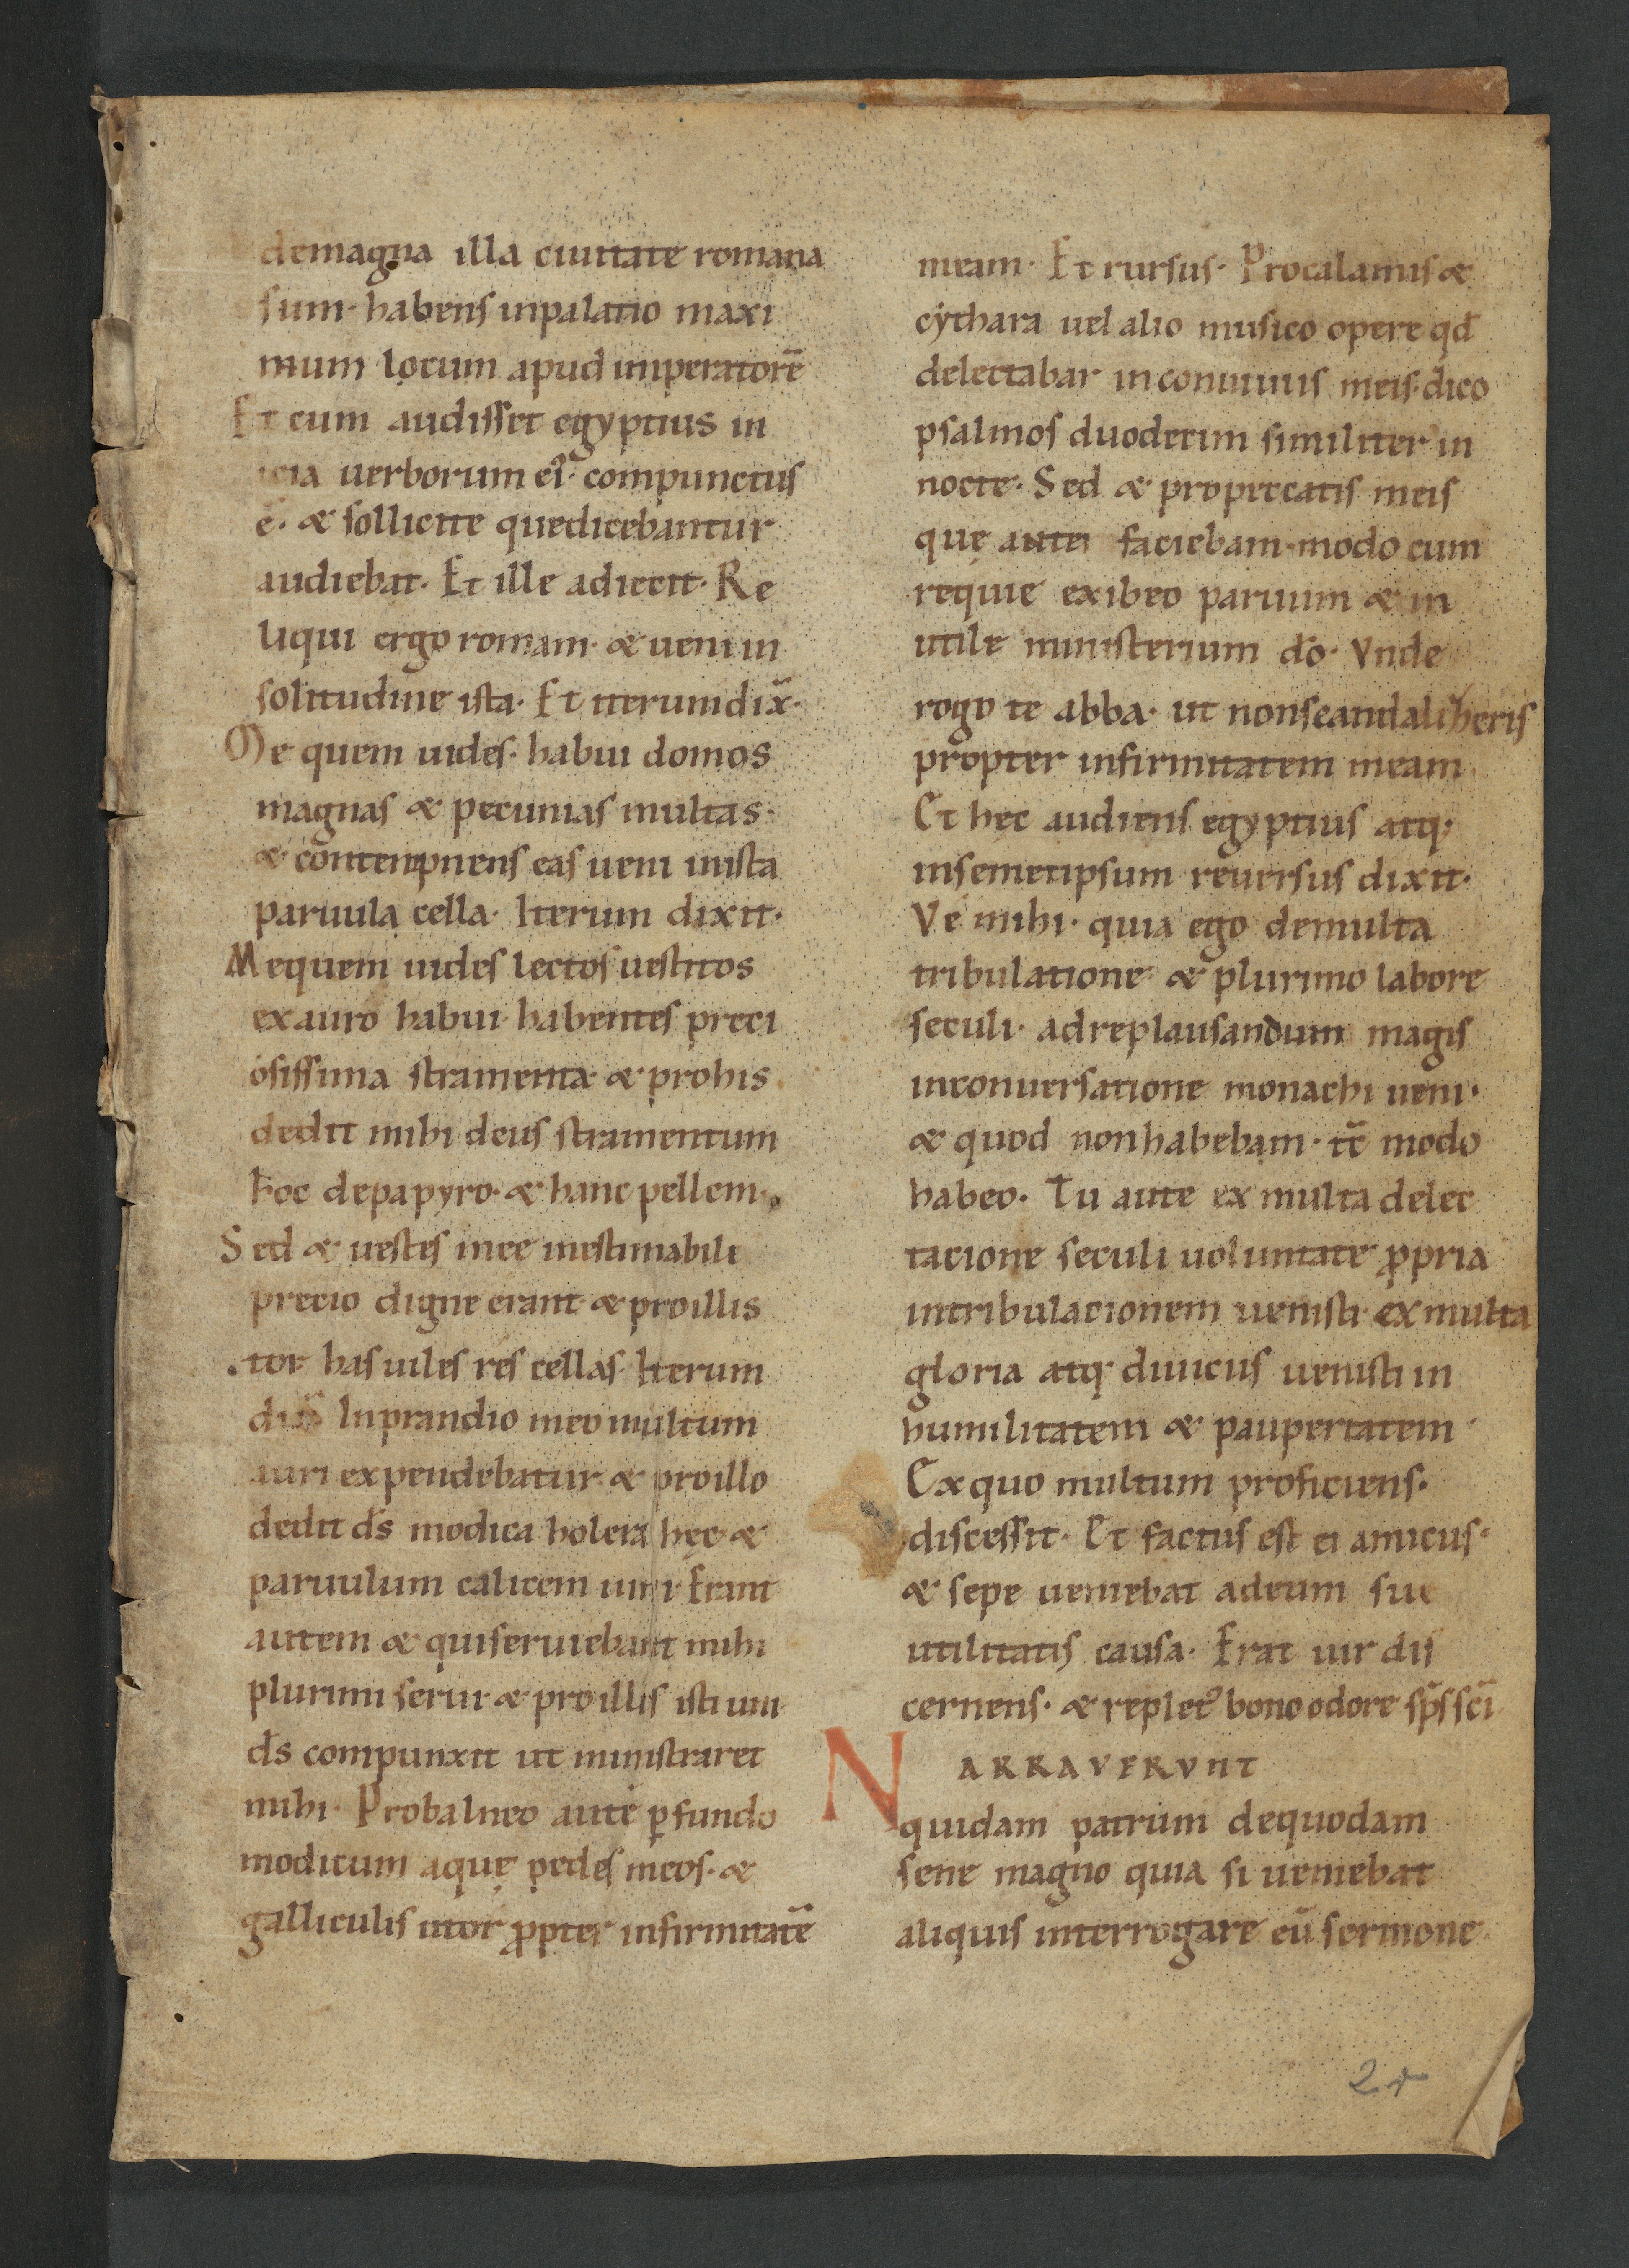 demagna illa ciuitate romana
sum· habens inpalatio maxi
mum locum apud imperatorē
Et cum audisset egyptius in
icia uerborum ei᷒· compunctus
ē· & sollicite quedicebantur
audiebat· Et ille adiecit· Re
liqui ergo romam· & ueni in
solitudine ista· Et iterum dix̄·
Me quem uides· habui domos
magnas & pecunias multas·
& contempnens eas ueni inista
paruula cella· Iterum dixit·
Mequem uides lectos uestitos
exauro habui· habentes preci
osissima stramenta· & prohis
dedit mihi deus stramentum
hoc depapyro· & hanc pellem·
Sed & uestes mee inestimabili
precio digne erant· & proillis
·tor has uiles res cellas· Iterum
dix̄ Inprandio meo multum
auri expendebatur· & proillo
dedit ds̄ modica holera hęc· &
paruulum calicem uini· Erant
autem & quiseruiebant mihi
plurimi serui· & proillis isti uni
ds̄ compunxit ut ministraret
mihi· Probalneo autē ꝑfundo
modicum aquę pedes meos· &
galliculis utor ꝓpter infirmitatē
meam· Et rursus· Procalamis &
cythara uel alio musico opere qd̄
delectabar inconuiuiis meis· dico
psalmos duodecim similiter in
nocte· Sed & propeccatis meis
quę ante faciebam· modo cum
requie exibeo paruum & in
utile ministerium dō· Vnde
rogo te abba· ut nonscandalizeris
propter infirmitatem meam
Et hęc audiens egyptius atq;
insemetipsum reuersus dixit·
Ve mihi· quia ego demulta
tribulatione & plurimo labore
seculi· adreplausandum magis
inconuersatione monachi ueni·
& quod nonhabebam· tc̄ modo
habeo· Tu aute ex multa delec
tacione seculi uoluntate ꝓpria
intribulacionem uenisti· ex multa
gloria atq; diuiciis uenisti in
humilitatem & paupertatem·
Ex quo multum proficiens·
discessit· Et factus est ei amicus·
& sepe ueniebat adeum sue
utilitatis causa· Erat uir dis
cernens· & replet᷒ bono odore sp̄s sc̄i
NARRAVERVNT
quidam patrum dequodam
sene magno quia si ueniebat
aliquis interrogare eū sermone
2r